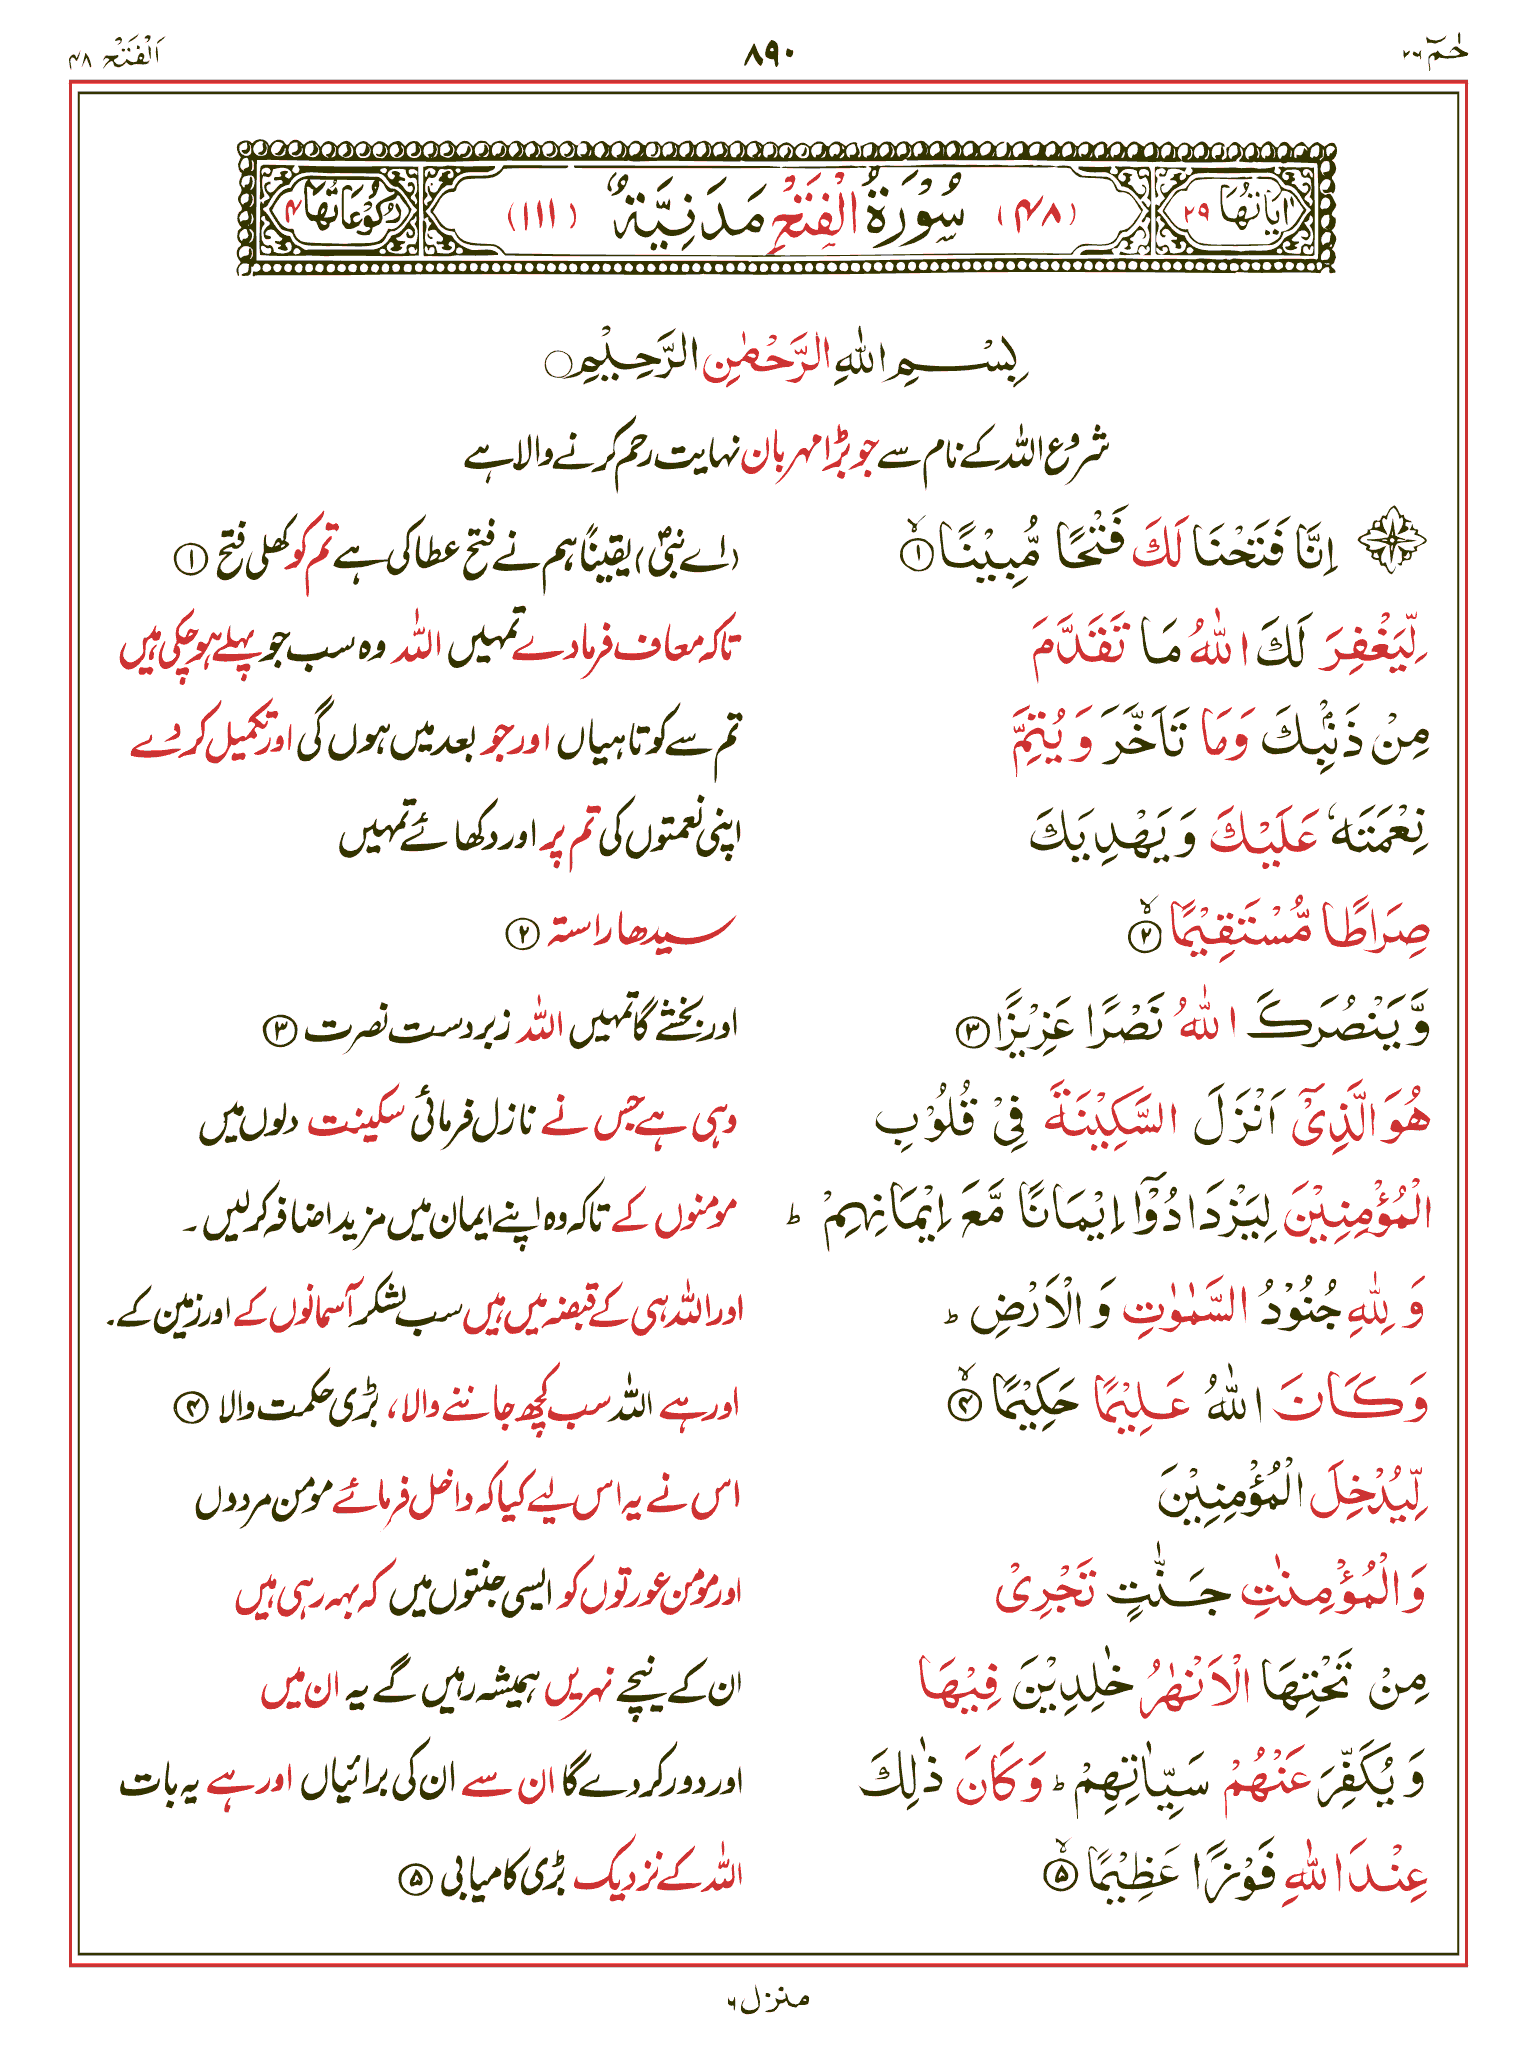 حٰمٓ ۲۶
۸۹۰
اَلْفَتْح ۴۸
اٰیَاتُهَا ۲۹
(۴۸) سُوْرَةُ الْفَتْحِ مَدَنِيَّةٌ (۱۱۱)
رُكُوْعَاتُهَا ۴
بِسْمِ اللّٰهِ الرَّحْمٰنِ الرَّحِيْمِ ○
شروع اللہ کے نام سے جو بڑا مہربان نہایت رحم کرنے والا ہے
اِنَّا فَتَحْنَا لَكَ فَتْحًا مُّبِيْنًا ۙ ①
(اے نبیؐ) یقیناً ہم نے فتح عطا کی ہے تم کو کھلی فتح ①
لِّيَغْفِرَ لَكَ اللّٰهُ مَا تَقَدَّمَ
تاکہ معاف فرمادے تمہیں اللہ وہ سب جو پہلے ہوچکی ہیں
مِنْ ذَنْۢبِكَ وَمَا تَاَخَّرَ وَيُتِمَّ
تم سے کوتاہیاں اور جو بعد میں ہوں گی اور تکمیل کردے
نِعْمَتَهٗ عَلَيْكَ وَيَهْدِيَكَ
اپنی نعمتوں کی تم پر اور دکھائے تمہیں
صِرَاطًا مُّسْتَقِيْمًا ۙ ②
سیدھا راستہ ②
وَّيَنْصُرَكَ اللّٰهُ نَصْرًا عَزِيْزًا ③
اور بخشے گا تمہیں اللہ زبردست نصرت ③
هُوَ الَّذِيْۤ اَنْزَلَ السَّكِيْنَةَ فِيْ قُلُوْبِ
وہی ہے جس نے نازل فرمائی سکینت دلوں میں
الْمُؤْمِنِيْنَ لِيَزْدَادُوْۤا اِيْمَانًا مَّعَ اِيْمَانِهِمْ ؕ
مومنوں کے تاکہ وہ اپنے ایمان میں مزید اضافہ کرلیں۔
وَلِلّٰهِ جُنُوْدُ السَّمٰوٰتِ وَالْاَرْضِ ؕ
اور اللہ ہی کے قبضہ میں ہیں سب لشکر آسمانوں کے اور زمین کے۔
وَكَانَ اللّٰهُ عَلِيْمًا حَكِيْمًا ۙ ④
اور ہے اللہ سب کچھ جاننے والا، بڑی حکمت والا ④
لِّيُدْخِلَ الْمُؤْمِنِيْنَ
اس نے یہ اس لیے کیا کہ داخل فرمائے مومن مردوں
وَالْمُؤْمِنٰتِ جَنّٰتٍ تَجْرِيْ
اور مومن عورتوں کو ایسی جنتوں میں کہ بہہ رہی ہیں
مِنْ تَحْتِهَا الْاَنْهٰرُ خٰلِدِيْنَ فِيْهَا
ان کے نیچے نہریں ہمیشہ رہیں گے یہ ان میں
وَيُكَفِّرَ عَنْهُمْ سَيِّاٰتِهِمْ ؕ وَكَانَ ذٰلِكَ
اور دور کردے گا ان سے ان کی برائیاں اور ہے یہ بات
عِنْدَ اللّٰهِ فَوْزًا عَظِيْمًا ۙ ⑤
اللہ کے نزدیک بڑی کامیابی ⑤
منزل ۶